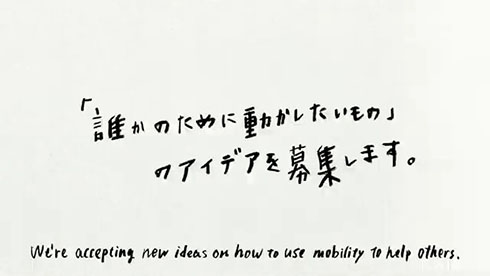 「誰かのために動かしたいもの」
のアイデアを募集します。
We're accepting new ideas on how to use mobility to help others.